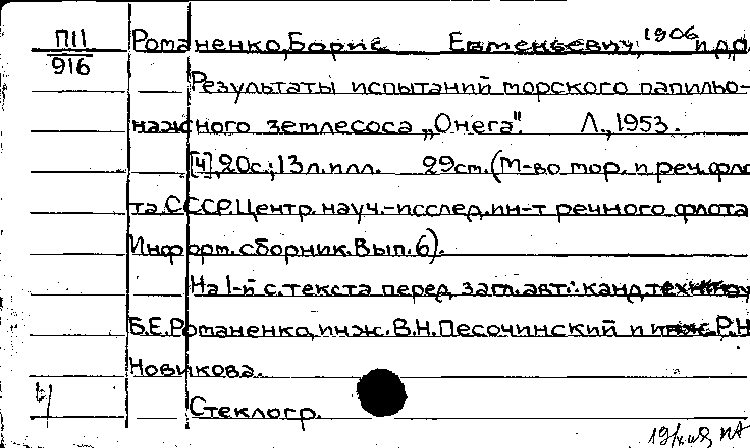 П11
916
Романенко, Борис Евменьевич, 1906 и др.
Результаты испытаний морского папильо-
нажного землесоса „Онега". Л., 1953.
[4], 20с.; 13л. илл. 29см. (М-во мор. и реч. фло-
та СССР. Центр. науч.-исслед. ин-т речного флота
Информ. сборник. Вып. 6).
На 1-й с. текста перед загл. авт.: канд. техн. наук
Б.Е. Романенко, инж. В.Н. Песочинский и инж. Р.Н
Новикова.
Стеклогр.